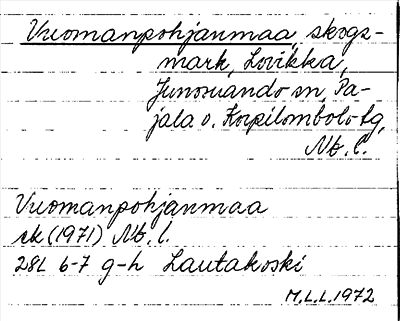 Vuomanpohjanmaa, skogs-
mark, Lovikka,
Junosuando sn, Pa-
jala o. Korpilombolo tg,
Nb. l.
Vuomanpohjanmaa
sk (1971) Nb. l.
28L 6-7 g-h Lautakoski
M.L.L. 1972